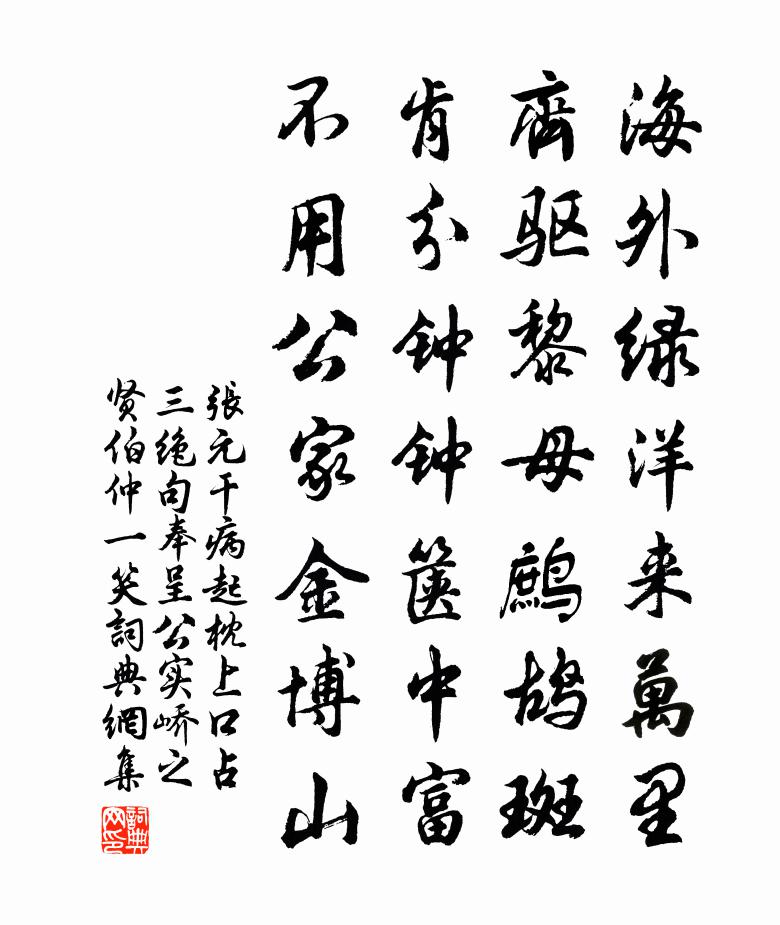 海外绿洋来萬里
齊驱黎母鹧鸪斑
肯分钟钟箧中富
不用公家金博山
張元干病起枕上口占
三绝句奉呈公实峤之
贤伯仲一笑詞典網集
詞典
网印